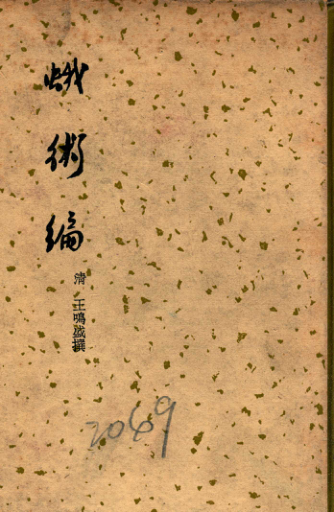 蛾術編
清 王鳴盛撰
2069